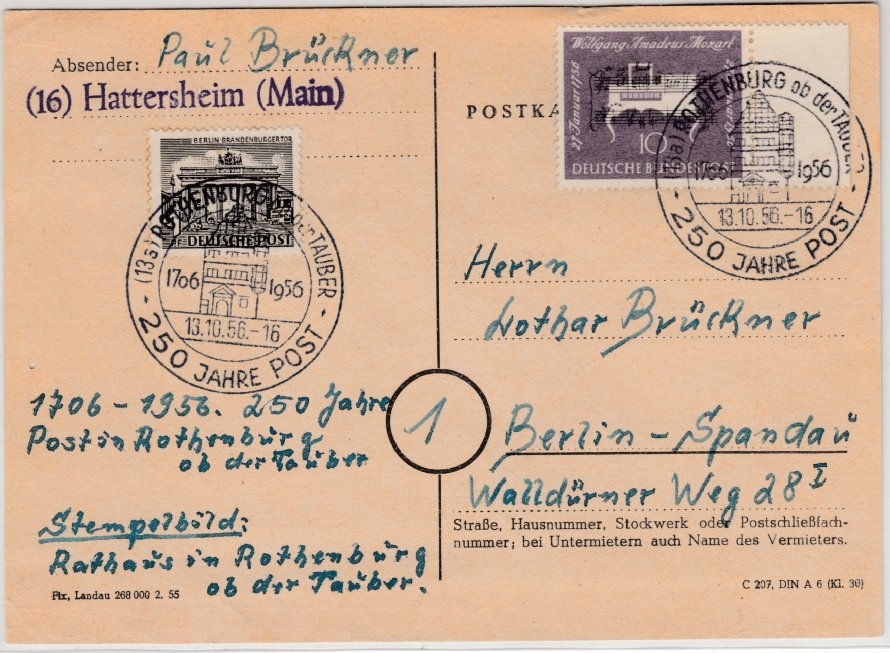 Absender: Paul Brückner
(16) Hattersheim (Main)
POSTKA
Wolfgang Amadeus Mozart
27. Januar 1756
10
DEUTSCHE BUNDESPOST
(13a) ROTHENBURG ob der TAUBER
1706 1956
13.10.56.-16
250 JAHRE POST
BERLIN BRANDENBURGER TOR
DEUTSCHE POST
(13a) ROTHENBURG ob der TAUBER
1706 1956
13.10.56.-16
250 JAHRE POST
Herrn
Lothar Brückner
1
Berlin - Spandau
Walldürner Weg 28 I
Straße, Hausnummer, Stockwerk oder Postschließfach-
nummer; bei Untermietern auch Name des Vermieters.
1706 - 1956. 250 Jahre
Post in Rothenburg
ob der Tauber
Stempelbild:
Rathaus in Rothenburg
ob der Tauber.
Pix, Landau 268 000 2. 55
C 207, DIN A 6 (Kl. 30)